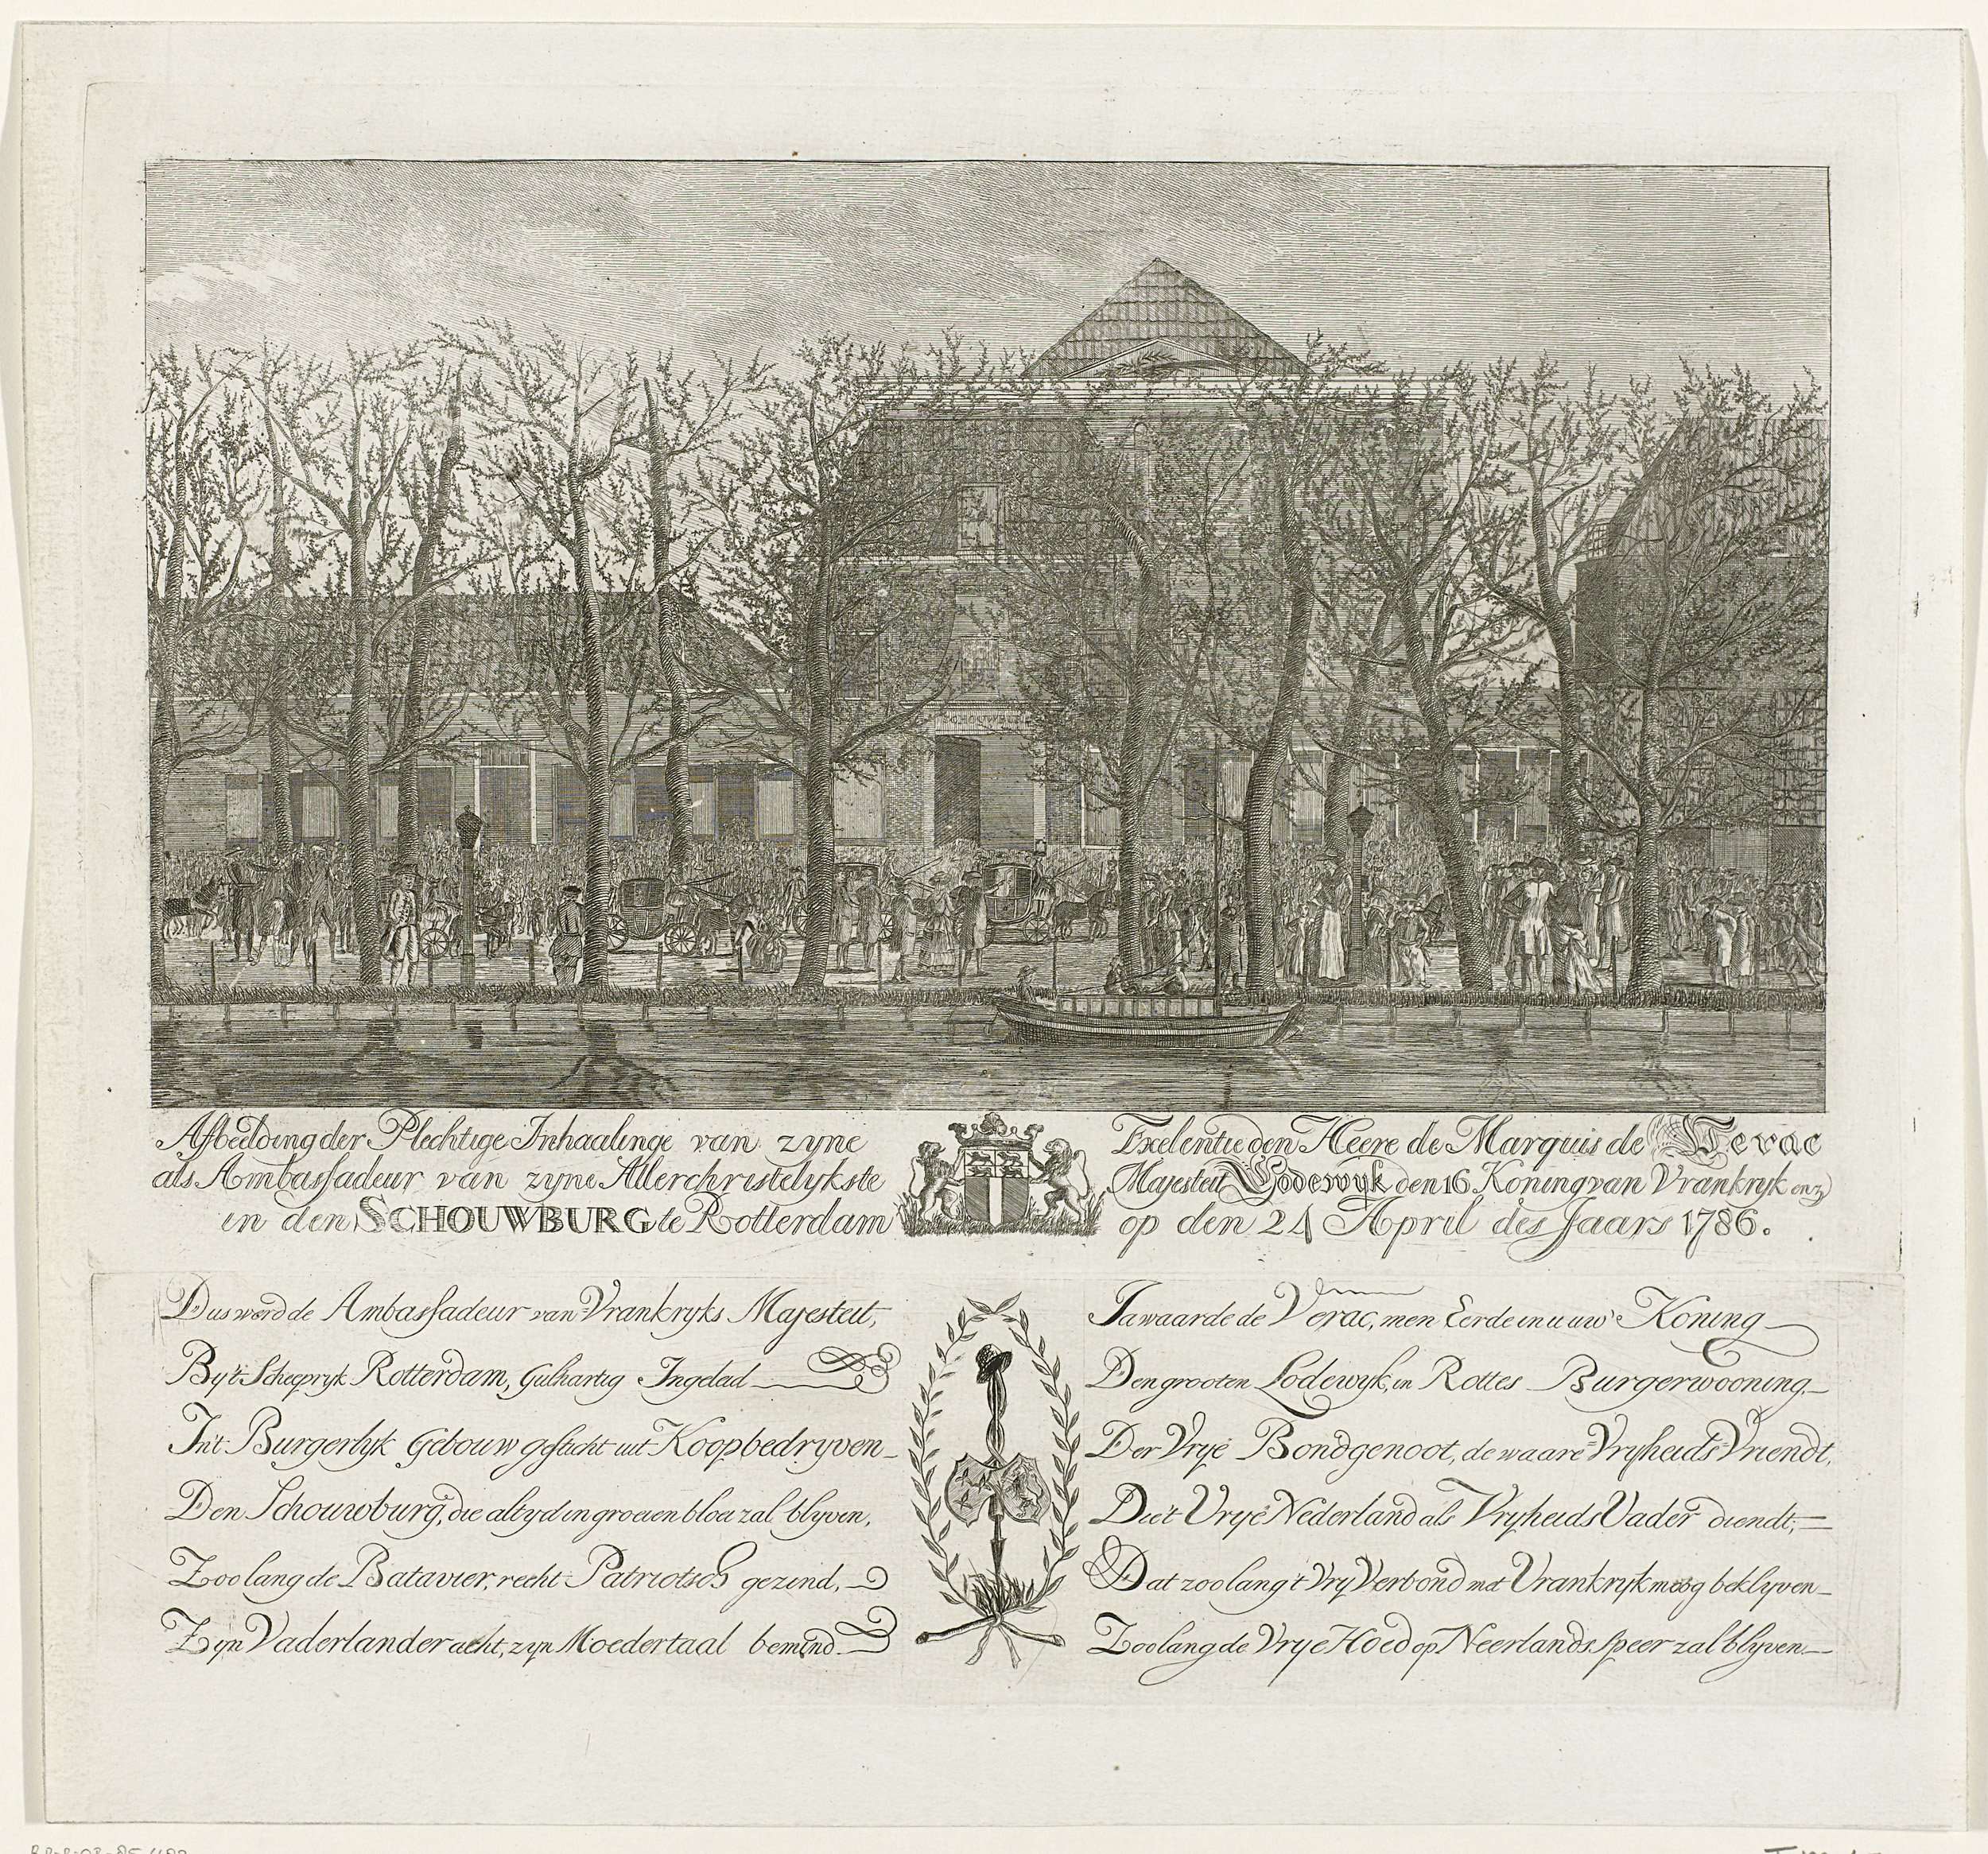 SCHOUWBURG
Afbeelding der Plechtige Inhaalinge van zyne Exelentie den Heere de Marquis de Verac
als Ambassadeur van zyne Allerchristelykste Majesteit Lodewyk den 16 Koning van Vrankryk enz
in den SCHOUWBURG te Rotterdam op den 24 April des Jaars 1786.
Dus werd de Ambassadeur van Vrankryks Majesteit,
By't Scheepryk Rotterdam, Gulhartig Ingeleid
In't Burgerlyk Gebouw gesticht uit Koopbedryven
Den Schouwburg, die altyd in groei en bloei zal blyven,
Zoo lang de Batavier, recht Patriotsch gezind,
Zyn Vaderlander acht, zyn Moedertaal bemind.
Ja waarde de Verac, men Eerde in u uw' Koning
Den grooten Lodewyk, in Rottes Burgerwooning
Der Vrye Bondgenoot, de waare Vryheids Vriendt,
Die't Vrye Nederland als Vryheids Vader diendt;
Dat zoo lang 't Vry Verbond met Vrankryk moog beklyven
Zoo lang de Vrye Hoed op Neerlands Speer zal blyven